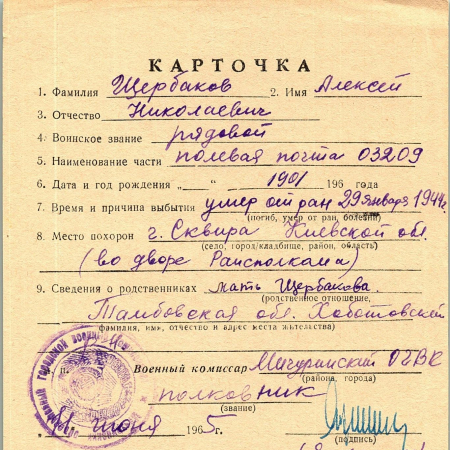 КАРТОЧКА
1. Фамилия Щербаков 2. Имя Алексей
3. Отчество Николаевич
4. Воинское звание рядовой
5. Наименование части полевая почта 03209
6. Дата и год рождения „ “ 1901 196 года
7. Время и причина выбытия умер от ран 29 января 1944г.
(погиб, умер от ран, болезни)
8. Место похорон г. Сквира Киевской обл.
(село, город/кладбище, район, область)
(во дворе Раисполкама)
9. Сведения о родственниках мать Щербакова.
(родственное отношение,
Тамбовская обл. Хоботовский
фамилия, имя, отчество и адрес места жительства)
п. Военный комиссар Мичуринский ОГВК
(района, города)
полковник
(звание)
июня 1965г.
(подпись)